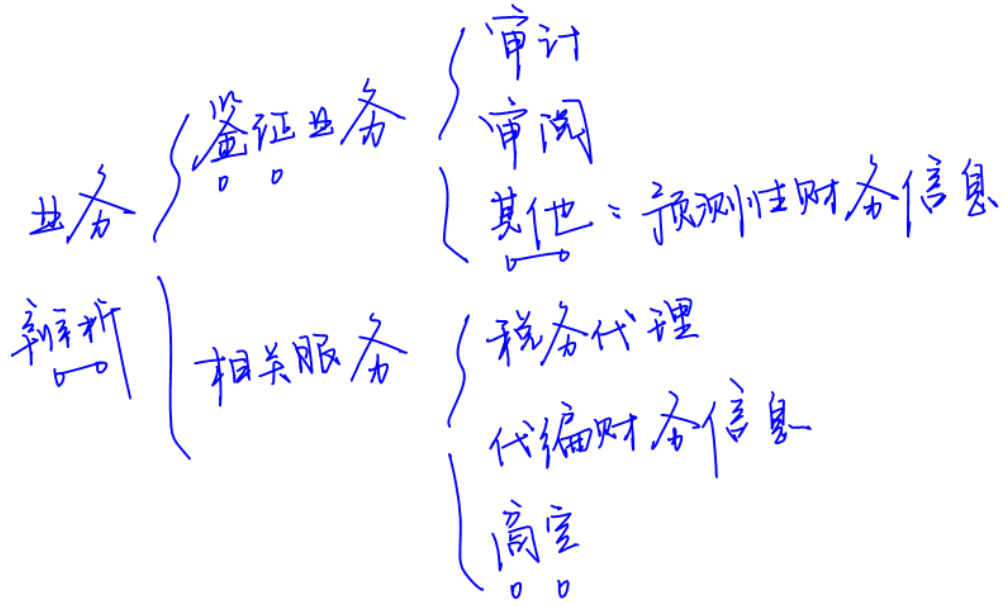 业务
辨析
鉴证业务
审计
审阅
其他：预测性财务信息
相关服务
税务代理
代编财务信息
商定